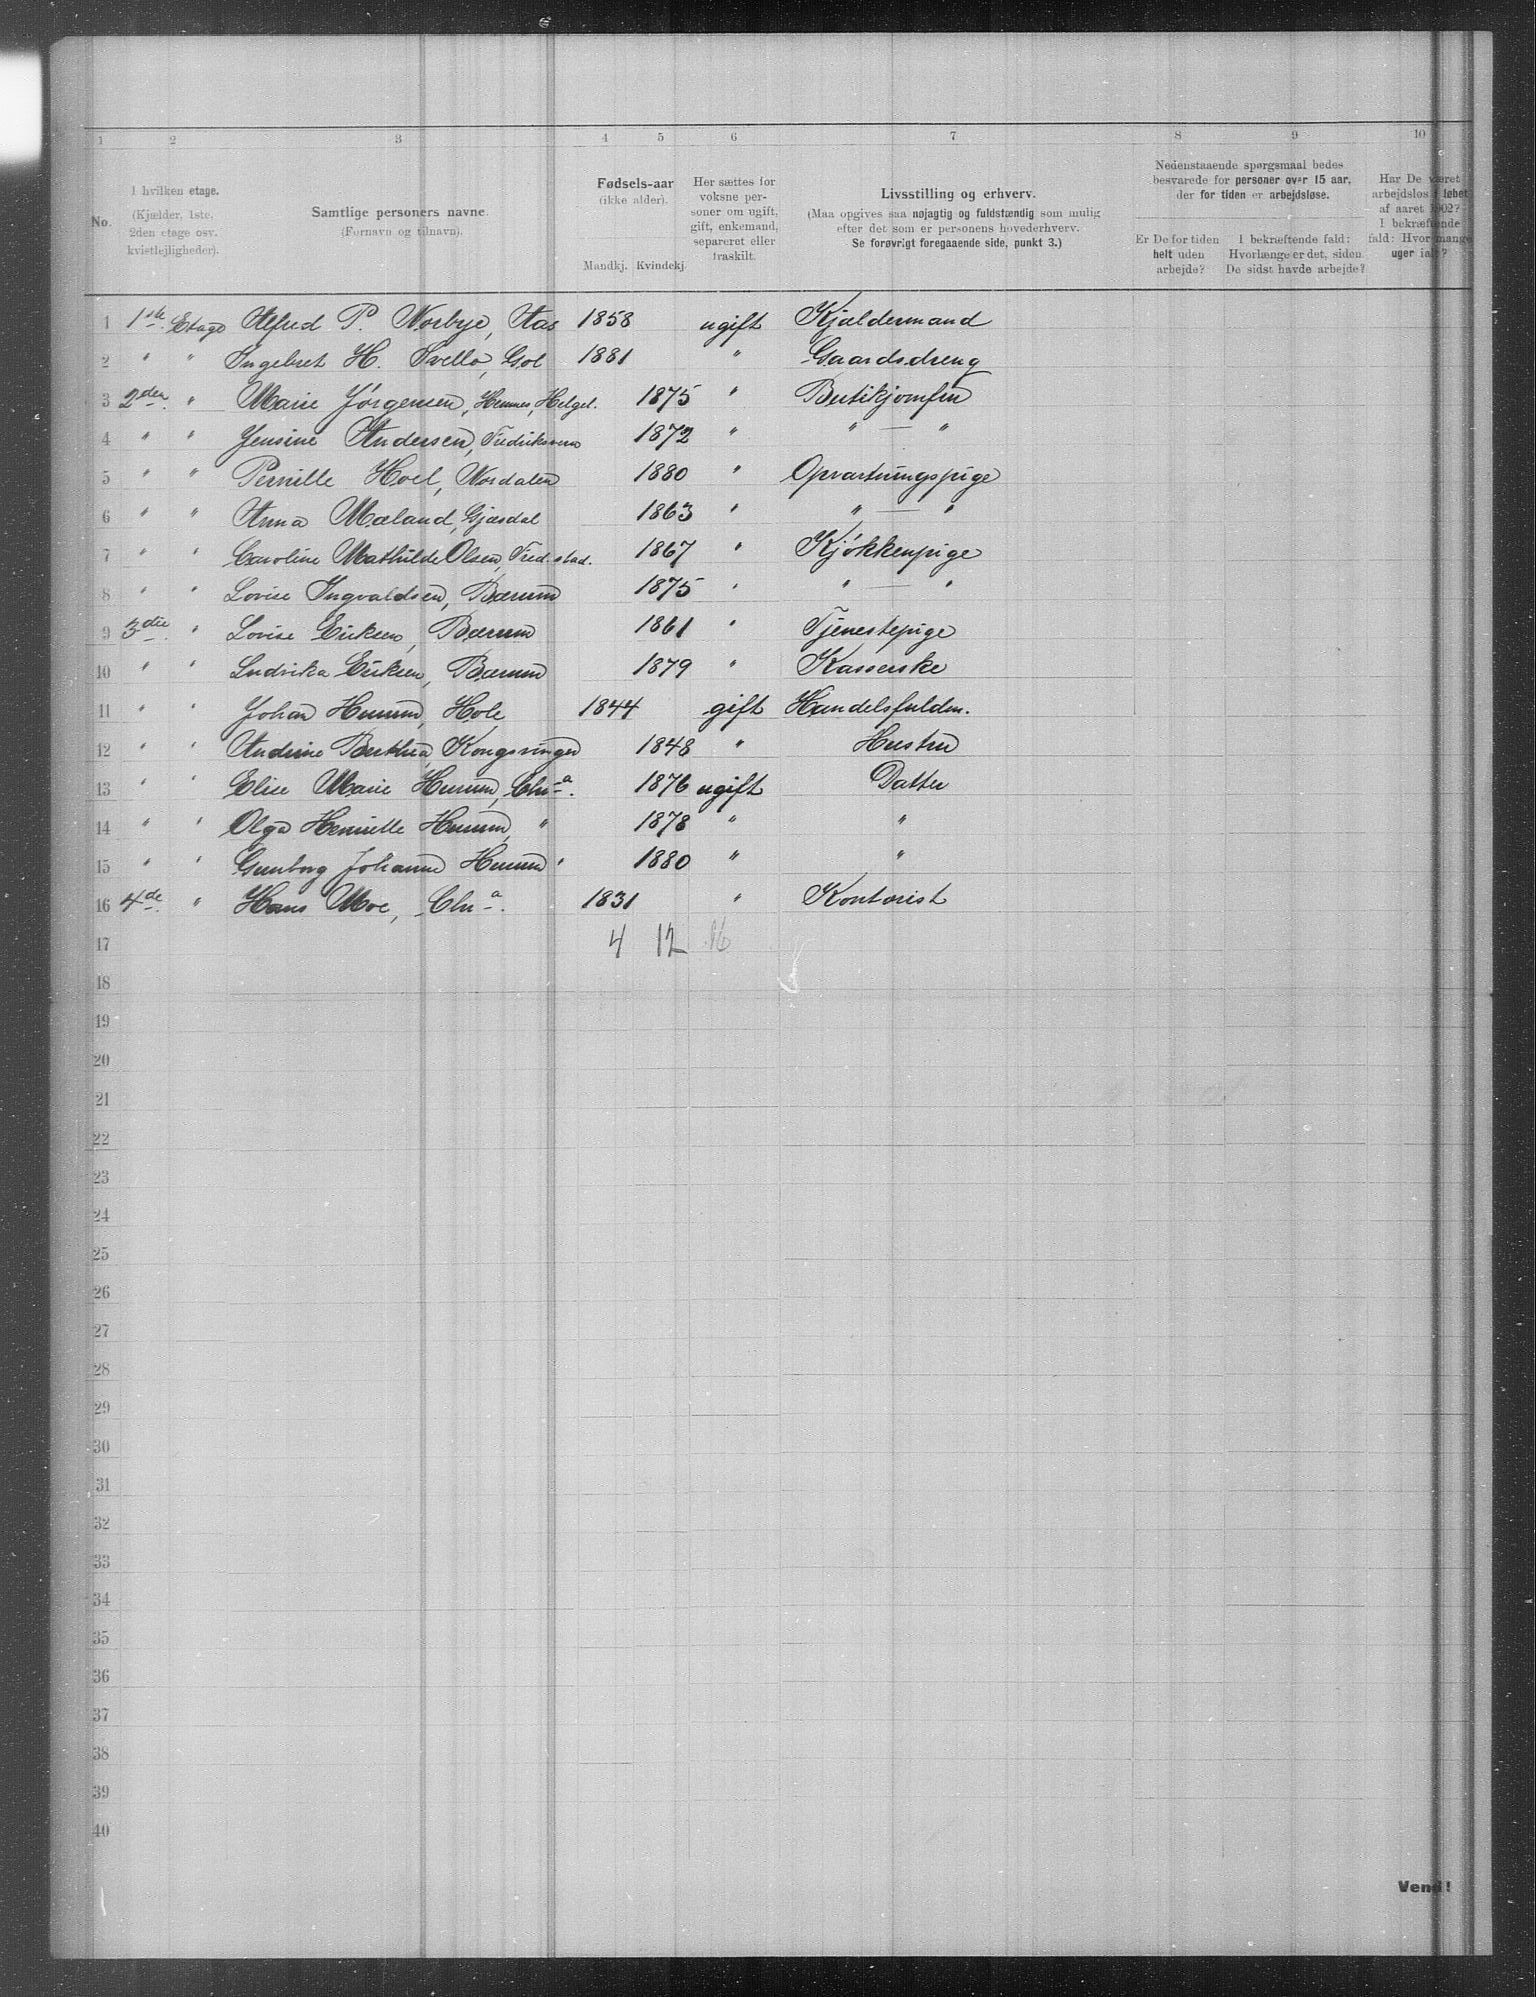 1 2 3 4 5 6 7 8 9 10
No.
I hvilken etage. (Kjælder, 1ste, 2den etage osv. kvistlejligheder).
Samtlige personers navne. (Fornavn og tilnavn).
Fødsels-aar (ikke alder). Mandkj. Kvindekj.
Her sættes for voksne personer om ugift, gift, enkemand, separeret eller fraskilt.
Livsstilling og erhverv.
(Maa opgives saa nøjagtig og fuldstændig som mulig efter det som er personens hovederhverv. Se forøvrigt foregaaende side, punkt 3.)
Nedenstaaende spørgsmaal bedes besvarede for personer over 15 aar, der for tiden er arbejdsløse.
Er De for tiden helt uden arbejde?
I bekræftende fald: Hvorlænge er det, siden De sidst havde arbejde?
Har De været arbejdsløs i løbet af aaret 1902? I bekræftende fald: Hvor mange uger ialt?
1 1ste Etage Alfred P. Norbye, Aas 1858 ugift Kjældermand
2 " " Ingebret H. Svello, Gol 1881 " Gaardsdreng
3 2den " Marie Jørgensen, Hemnes, Helgel. 1875 " Bestikjomfru
4 " " Jensine Andersen, Fredriksværn 1872 " " — "
5 " " Pernille Hoel, Nordalen 1880 " Opvartningspige
6 " " Anna Mæland, Gjæsdal 1863 " " — "
7 " " Caroline Mathilde Olsen, Fred.stad. 1867 " Kjøkkenpige
8 " " Lovise Ingvaldsen, Bærum 1875 " " — "
9 3die " Lovise Eriksen, Bærum 1861 " Tjenestepige
10 " " Ludvika Eriksen, Bærum 1879 " Kasserske
11 " " Johan Hurum, Hole 1844 gift Handelsfuldm.
12 " " Andrine Berthea, Kongsvinger 1848 " Hustru
13 " " Elise Marie Hurum, Chra. 1876 ugift Datter
14 " " Olga Henriette Hurum, " 1878 " "
15 " " Gunborg Johanne Hurum " 1880 " "
16 4de " Hans Moe, Chra. 1831 " Kontorist
17 4 12 16
18
19
20
21
22
23
24
25
26
27
28
29
30
31
32
33
34
35
36
37
38
39
40
Vend!